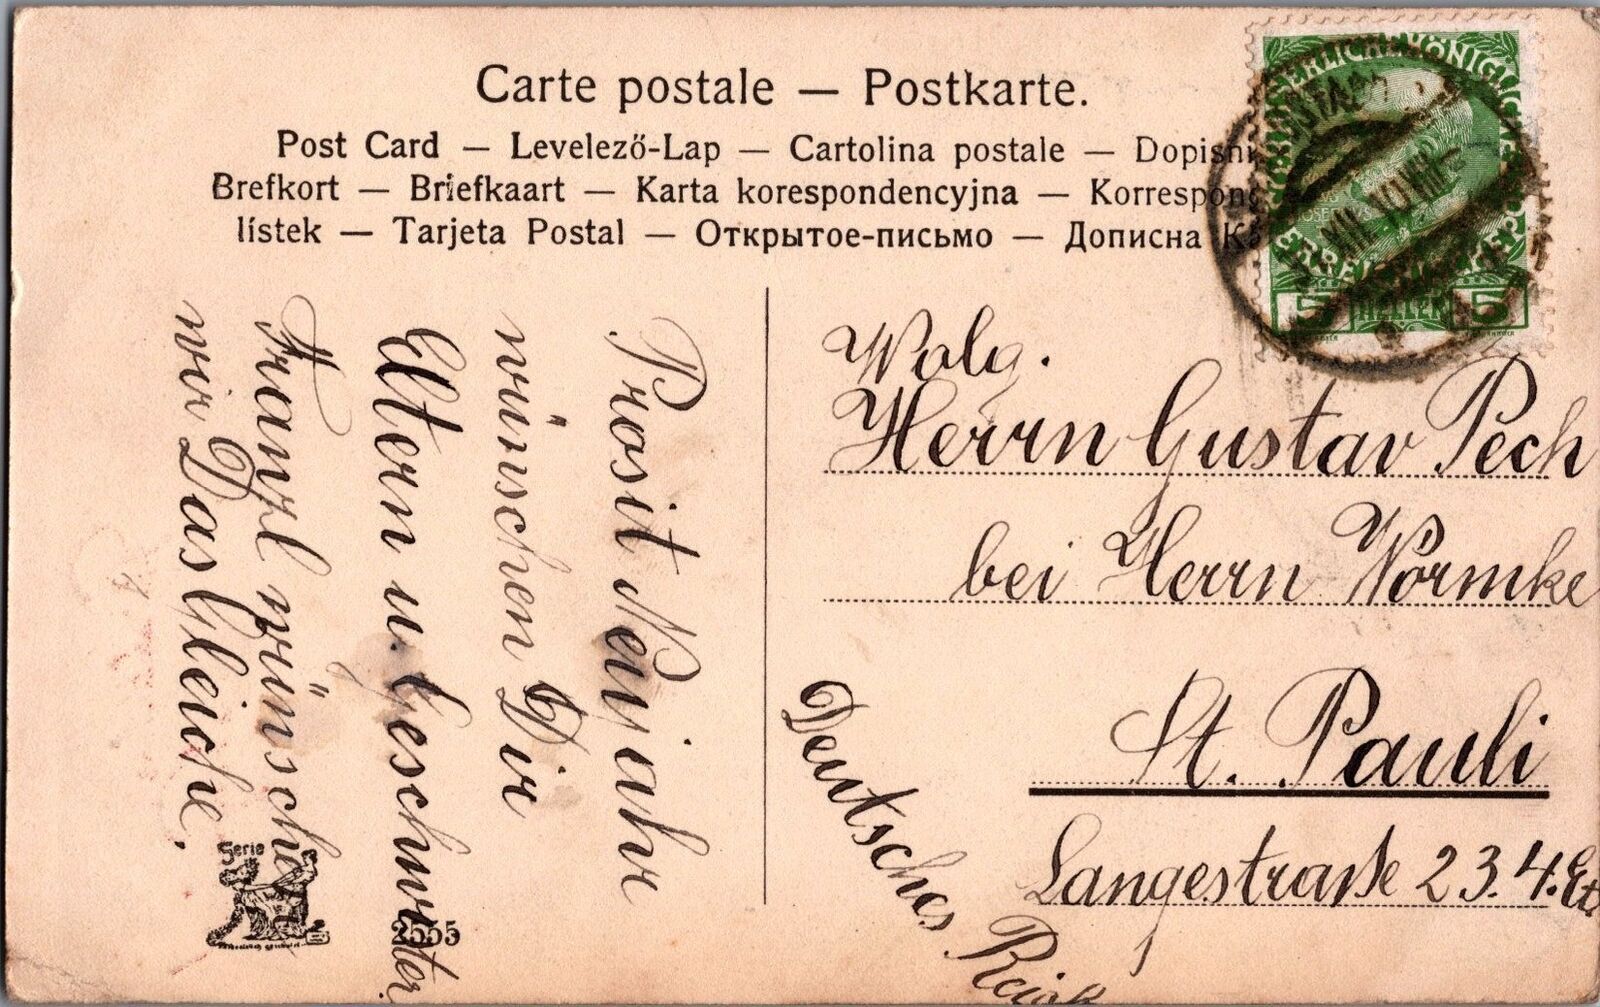 Carte postale — Postkarte.
Post Card — Levelező-Lap — Cartolina postale — Dopisni
Brefkort — Briefkaart — Karta korespondencyjna — Korrespond
lístek — Tarjeta Postal — Открытое-письмо — Дописна
KAISERLICHE KÖNIGLICHE
5 HELLER 5
XII. 10 VIII
Prosit Neujahr
wünschen Dir
Eltern u. Geschwister
Franzl wünsche
wir Das Gleiche.
Wolg.
Herrn Gustav Pech
bei Herrn Wörmke
St. Pauli
Langestraße 23. 4. Et
Deutsches Reich
Serie
2555